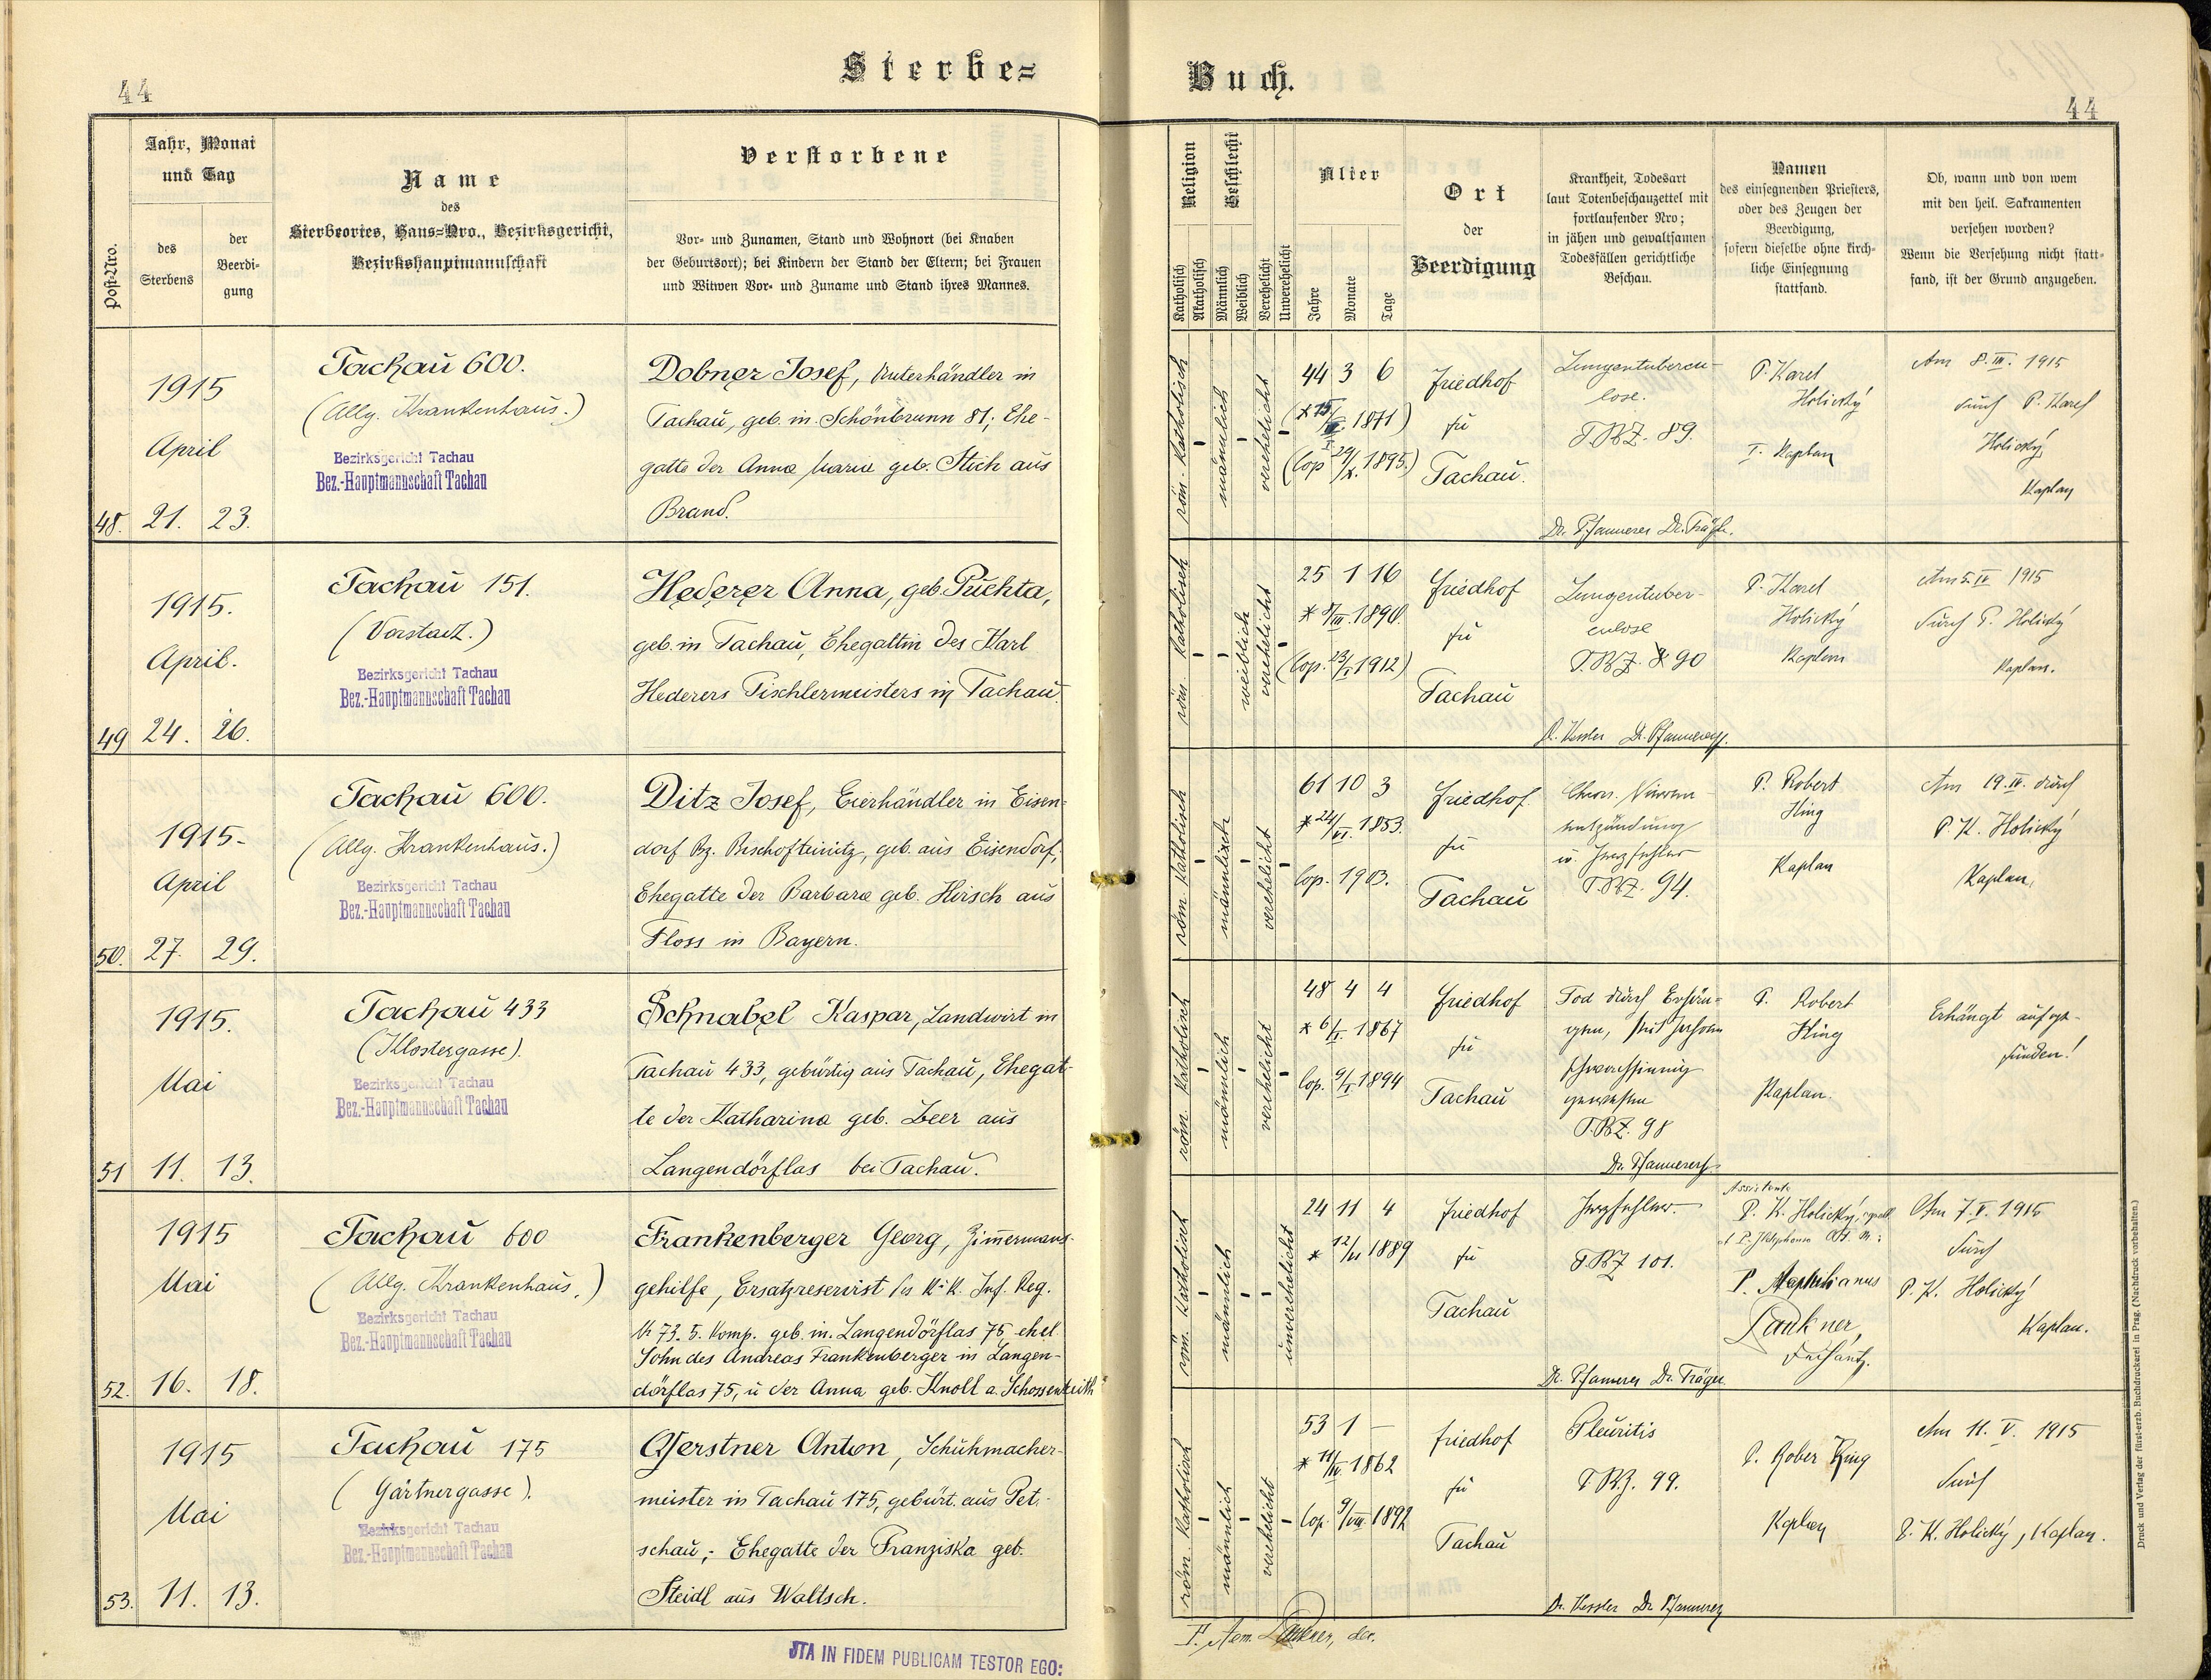 44
Sterbe=
Buch.
44
Post-Nro.
Jahr, Monat
und Tag
des
Sterbens
der
Beerdi-
gung
Name
des
Sterbeortes, Haus=Nro., Bezirksgericht,
Bezirkshauptmannschaft
Verstorbene
Vor- und Zunamen, Stand und Wohnort (bei Knaben
der Geburtsort); bei Kindern der Stand der Eltern; bei Frauen
und Witwen Vor- und Zuname und Stand ihres Mannes.
Religion
Katholisch
Akatholisch
Geschlecht
Männlich
Weiblich
Verehelicht
Unverehelicht
Alter
Jahre
Monate
Tage
Ort
der
Beerdigung
Krankheit, Todesart
laut Totenbeschauzettel mit
fortlaufender Nro;
in jähen und gewaltsamen
Todesfällen gerichtliche
Beschau.
Namen
des einsegnenden Priesters,
oder des Zeugen der
Beerdigung,
sofern dieselbe ohne kirch-
liche Einsegnung
stattfand.
Ob, wann und von wem
mit den heil. Sakramenten
versehen worden?
Wenn die Versehung nicht statt-
fand, ist der Grund anzugeben.
48.
1915
April
21. 23.
Tachau 600.
(Allg. Krankenhaus.)
Bezirksgericht Tachau
Bez.-Hauptmannschaft Tachau
Dobner Josef, Unterhändler in
Tachau, geb. in Schönbrunn 81; Ehe-
gatte der Anna Marie geb. Stich aus
Brand.
röm. katholisch
männlich
verehelicht
44 3 6
1871)
(Cop 29/X. 1895.)
Friedhof
zu
Tachau.
Lungentubercu-
lose.
T.B.Z. 89.
Dr. Pfannerer Dr. Träger.
P. Karel
Holický
I. Kaplan
Am 8. III. 1915
durch P. Karel
Holický,
Kaplan
49
1915.
April.
24. 26.
Tachau 151.
(Vorstadt.)
Bezirksgericht Tachau
Bez.-Hauptmannschaft Tachau
Hederer Anna, geb. Puchta,
geb. in Tachau, Ehegattin des Karl
Hederers Tischlermeisters in Tachau.
röm. katholisch
weiblich
verehelicht
25 1 16
* 8/III. 1890.
(Cop. 23/I. 1912)
Friedhof
zu
Tachau
Lungentuber-
culose
T.B.Z. 90
Dr. Kessler Dr. Pfannerer
P. Karel
Holický
Kaplan
Am 5. IV 1915
durch P. Holický
Kaplan.
50.
1915-
April
27. 29.
Tachau 600.
(Allg. Krankenhaus.)
Bezirksgericht Tachau
Bez.-Hauptmannschaft Tachau
Ditz Josef, Eierhändler in Eisen=
dorf Bz. Bischofteinitz, geb. aus Eisendorf,
Ehegatte der Barbara geb. Hirsch aus
Floss in Bayern.
röm. katholisch
männlich
verehelicht
61 10 3
* 24/VI. 1853.
Cop. 1903.
Friedhof
zu
Tachau
Chron. Nieren-
entzündung
u. Herzfehler
T.B.Z. 94.
P. Robert
King
Kaplan
Am 19. IV. durch
P. K. Holický
Kaplan,
51
1915.
Mai
11. 13.
Tachau 433
(Klostergasse).
Bezirksgericht Tachau
Bez.-Hauptmannschaft Tachau
Schnabel Kaspar, Landwirt in
Tachau 433, gebürtig aus Tachau, Ehegat-
te der Katharina geb. Zeer aus
Langendörflas bei Tachau.
röm. katholisch
männlich
verehelicht
48 4 4
* 6/I. 1867
Cop. 9/I. 1894
Friedhof
zu
Tachau
Tod durch Erhän=
gen, seit Jahren
schwachsinnig
gewesen
T.B.Z. 98
Dr. Pfannerer
P. Robert
King
Kaplan.
Erhängt aufge-
funden!
52.
1915
Mai
16. 18.
Tachau 600
(Allg. Krankenhaus.)
Bezirksgericht Tachau
Bez.-Hauptmannschaft Tachau
Frankenberger Georg, Zimmermans-
gehilfe, Ersatzreservist des K. K. Inf. Reg.
No 73. 5. Komp. geb. in Langendörflas 75 ehel.
Sohn des Andreas Frankenberger in Langen-
dörflas 75, u der Anna geb. Knoll a. Schossenreith
röm. katholisch
männlich
unverehelicht
24 11 4
* 12/VI 1889
Friedhof
zu
Tachau
Herzfehler.
T.B.Z 101.
Dr. Pfannerer Dr. Träger
Assistente
P. K. Holický,
P.
Laukner,
Dechant.
Am 7. V. 1915
durch
P. K. Holický
Kaplan.
53.
1915
Mai
11. 13.
Tachau 175
(Gärtnergasse).
Bezirksgericht Tachau
Bez.-Hauptmannschaft Tachau
Gerstner Anton, Schuhmacher-
meister in Tachau 175, gebürt. aus Pet-
schau; Ehegatte der Franziska geb.
Steidl aus Waltsch.
röm. katholisch
männlich
verehelicht
53 1 -
* 11/IV. 1862
Cop. 9/VIII. 1892
Friedhof
zu
Tachau
Pleuritis
T.B.Z. 99.
Dr. Kessler Dr Pfannerer
P. Rober King
Kaplan
Am 11. V. 1915
durch
P. K. Holický, Kaplan.
Laukner, dec.
ITA IN FIDEM PUBLICAM TESTOR EGO:
Druck und Verlag der fürst-erzb. Buchdruckerei in Prag. (Nachdruck vorbehalten.)